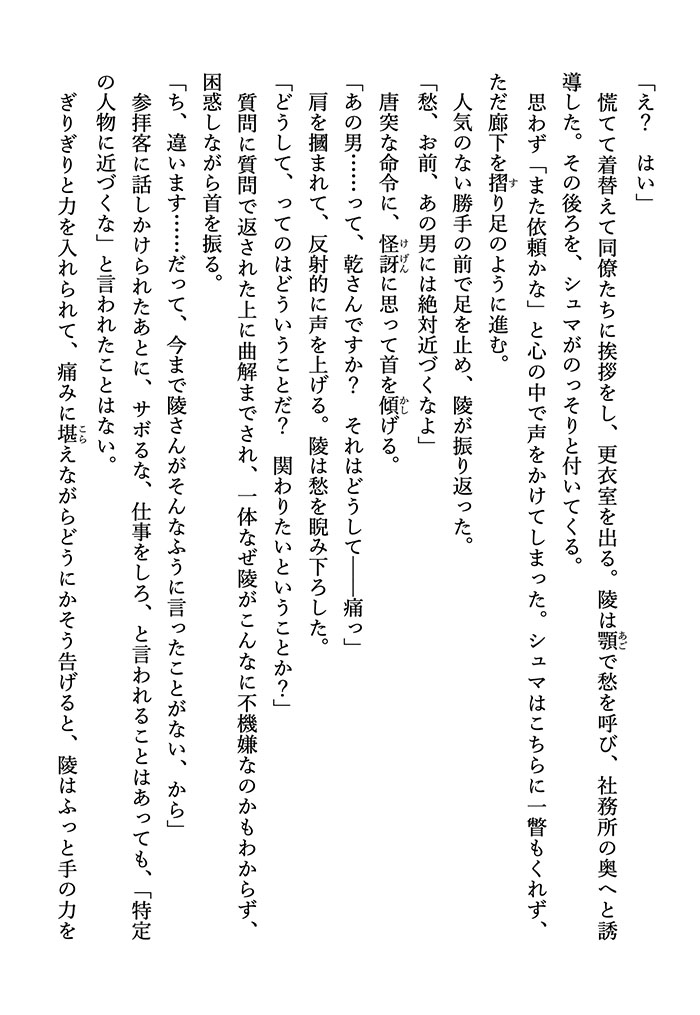 「え？　はい」
　慌てて着替えて同僚たちに挨拶をし、更衣室を出る。陵は顎で愁を呼び、社務所の奥へと誘
導した。その後ろを、シュマがのっそりと付いてくる。
　思わず「また依頼かな」と心の中で声をかけてしまった。シュマはこちらに一瞥もくれず、
ただ廊下を摺り足のように進む。
　人気のない勝手の前で足を止め、陵が振り返った。
「愁、お前、あの男には絶対近づくなよ」
　唐突な命令に、怪訝に思って首を傾げる。
「あの男……って、乾さんですか？　それはどうして――痛っ」
　肩を摑まれて、反射的に声を上げる。陵は愁を睨み下ろした。
「どうして、ってのはどういうことだ？　関わりたいということか？」
　質問に質問で返された上に曲解までされ、一体なぜ陵がこんなに不機嫌なのかもわからず、
困惑しながら首を振る。
「ち、違います……だって、今まで陵さんがそんなふうに言ったことがない、から」
　参拝客に話しかけられたあとに、サボるな、仕事をしろ、と言われることはあっても、「特定
の人物に近づくな」と言われたことはない。
　ぎりぎりと力を入れられて、痛みに堪えながらどうにかそう告げると、陵はふっと手の力を